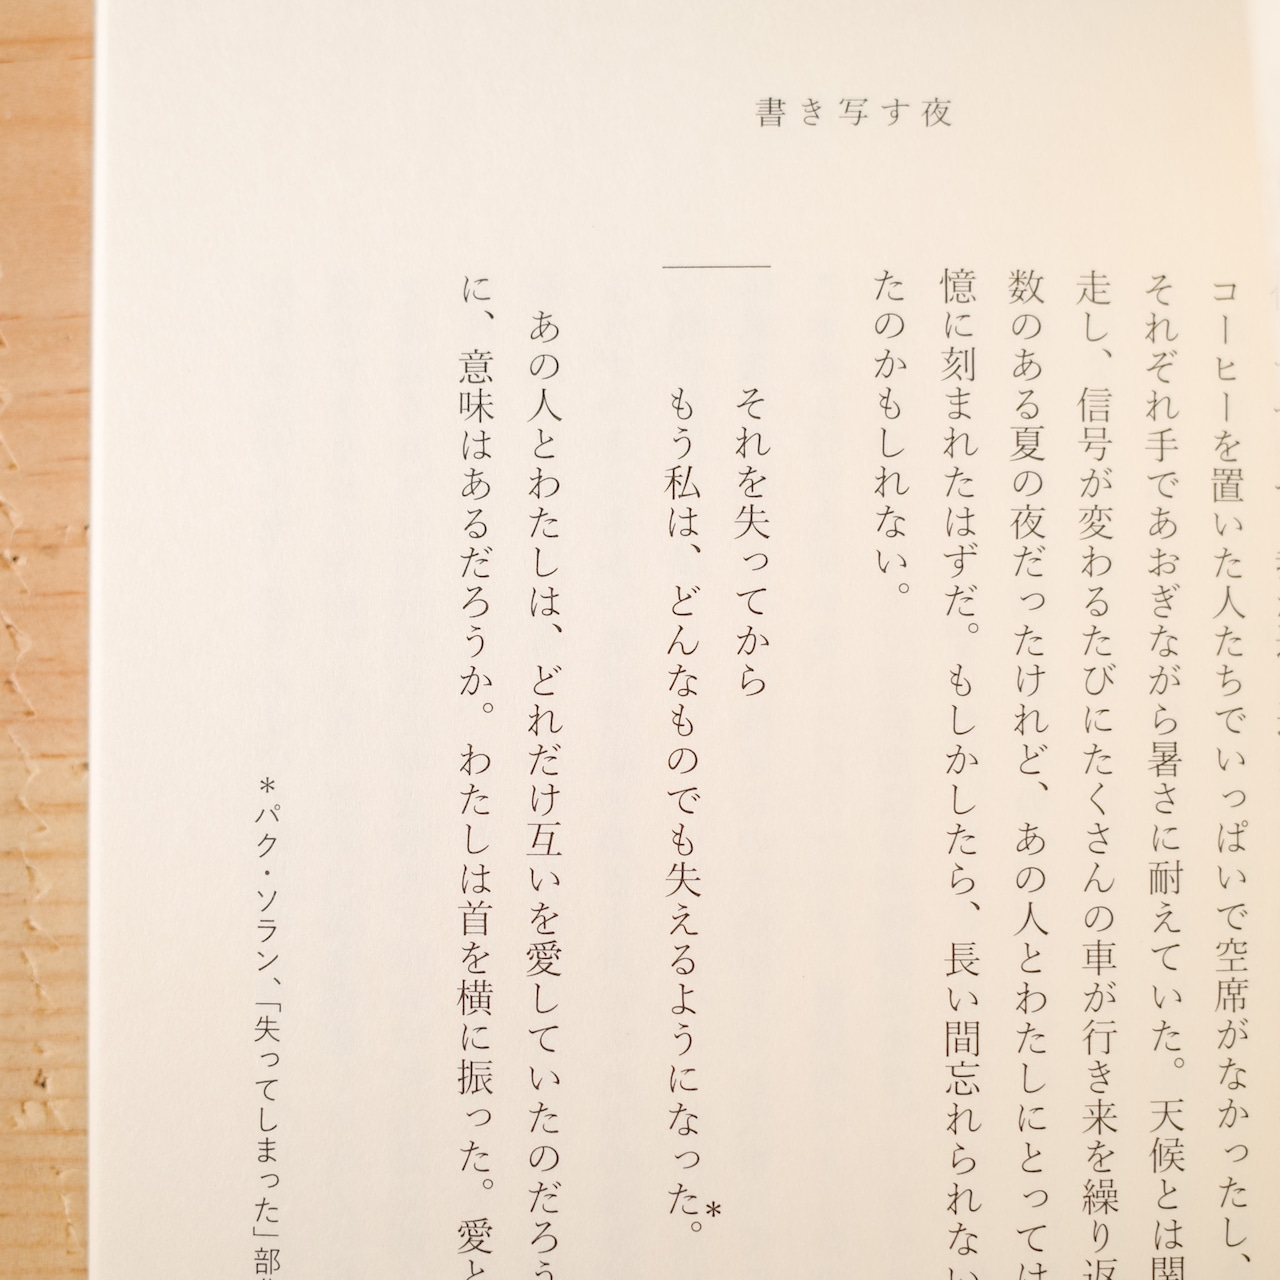 書き写す夜
コーヒーを置いた人たちでいっぱいで空席がなかったし、
それぞれ手であおぎながら暑さに耐えていた。天候とは関
走し、信号が変わるたびにたくさんの車が行き来を繰り返
数のある夏の夜だったけれど、あの人とわたしにとっては
憶に刻まれたはずだ。もしかしたら、長い間忘れられない
たのかもしれない。
それを失ってから
もう私は、どんなものでも失えるようになった。*
あの人とわたしは、どれだけ互いを愛していたのだろう
に、意味はあるだろうか。わたしは首を横に振った。愛と
*パク・ソラン、「失ってしまった」部